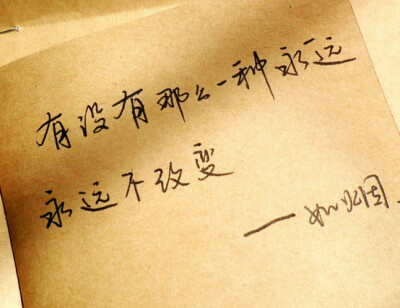 有没有那么一种永远
永远不改变
—如烟